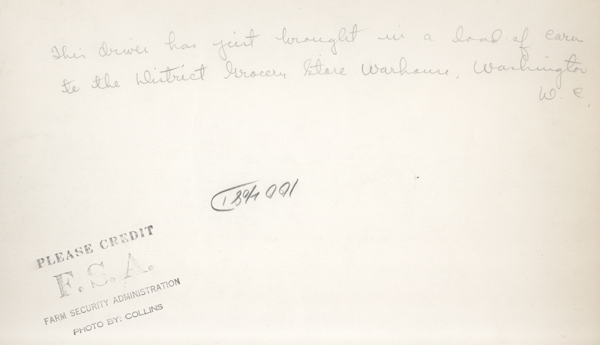 This driver has just brought in a load of corn
to the District Grocery Store Warhouse, Washington
D. C.
PLEASE CREDIT
F.S.A.
FARM SECURITY ADMINISTRATION
PHOTO BY: COLLINS